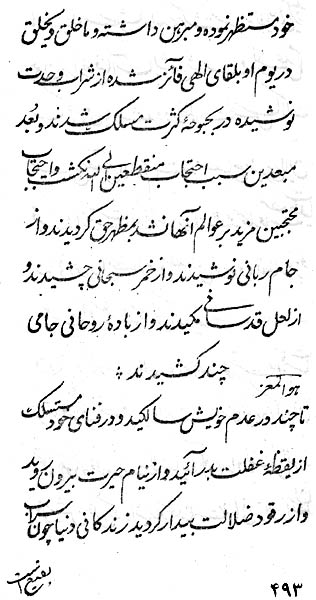 خود مستظهر نموده و مبرهن داشته و ما خلق و یخلق
در یوم او بلقای الهی فائز شده از شراب وحدت
نوشیده در بحبوحهٔ کثرت مسلک شدند و بعد
مبعدین سبب احتجاب منقطعین الی الله نگشت و احتجاب
محتجبین مزید بر عوالم آنها نشد بمظهر حق گردیدند و از
جام ربانی نوشیدند و از خمر سبحانی چشیدند و
از لعل قدسانی مکیدند و از بادهٔ روحانی جامی
چند کشیدند
هو المعز
تا چند در عدم خویش سالکید و در فنای خود مستسلک
از یقظهٔ غفلت بدر آئید و از نیام حیرت بیرون روید
و از رقود ضلالت بیدار گردید زندگانی دنیا چون سراب
بقیع است
۴۹۳